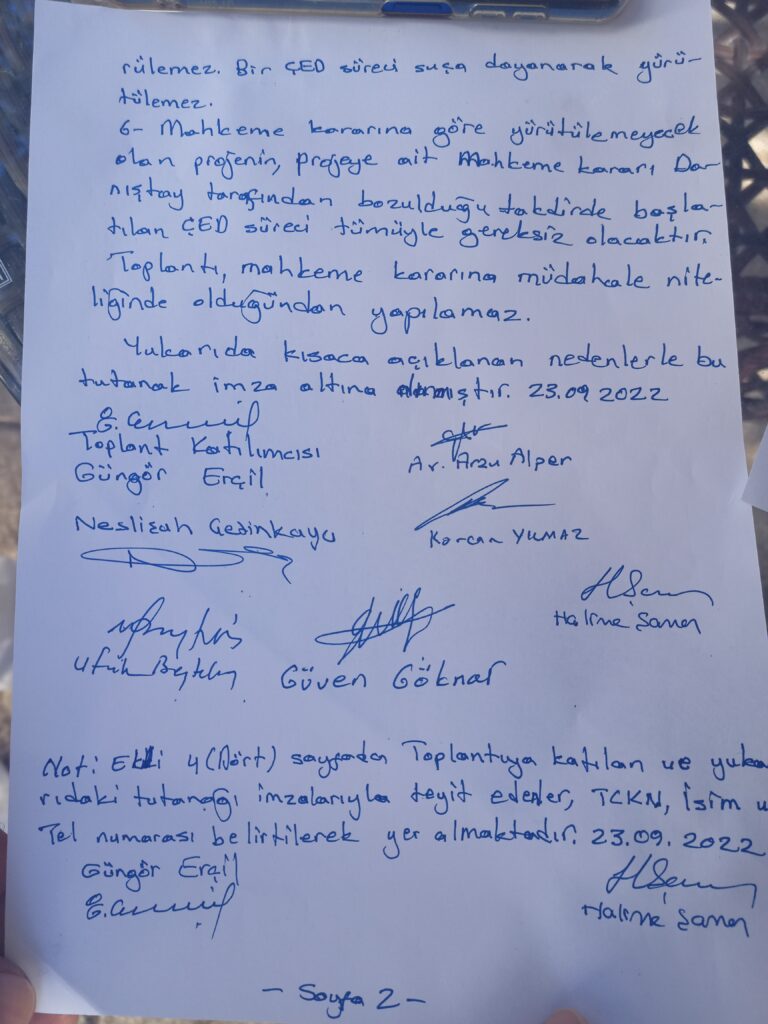 rülemez. Bir ÇED süreci suça dayanarak yürü-
tülemez.
6- Mahkeme kararına göre yürütülemeyecek
olan projenin, projeye ait Mahkeme kararı Da-
nıştay tarafından bozulduğu takdirde başla-
tılan ÇED süreci tümüyle gereksiz olacaktır.
Toplantı, mahkeme kararına müdahale nite-
liğinde olduğundan yapılamaz.
Yukarıda kısaca açıklanan nedenlerle bu
tutanak imza altına alınmıştır. 23.09 2022
Toplant Katılımcısı
Güngör Erçil
Av. Arzu Alper
Neslişah
Korcan YILMAZ
Halime Şaman
Ufuk
Güven Göknar
Not: Ekli 4 (Dört) sayfada Toplantıya katılan ve yuka
rıdaki tutanağı imzalarıyla teyit edenler, TCKN, İsim v
Tel numarası belirtilerek yer almaktadır. 23.09.2022
Güngör Erçil
Halime Şaman
- Sayfa 2 -